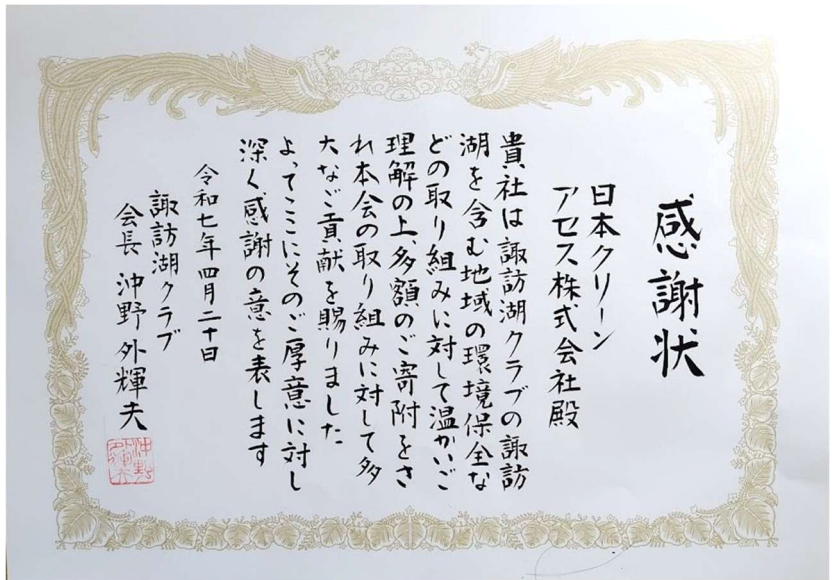 感謝状
日本クリーン
アセス株式会社殿
貴社は諏訪湖クラブの諏訪
湖を含む地域の環境保全な
どの取り組みに対して温かいご
理解の上、多額のご寄附をさ
れ本会の取り組みに対して多
大なご貢献を賜りました
よってここにそのご厚意に対し
深く感謝の意を表します
令和七年四月二十日
諏訪湖クラブ
会長 沖野外輝夫